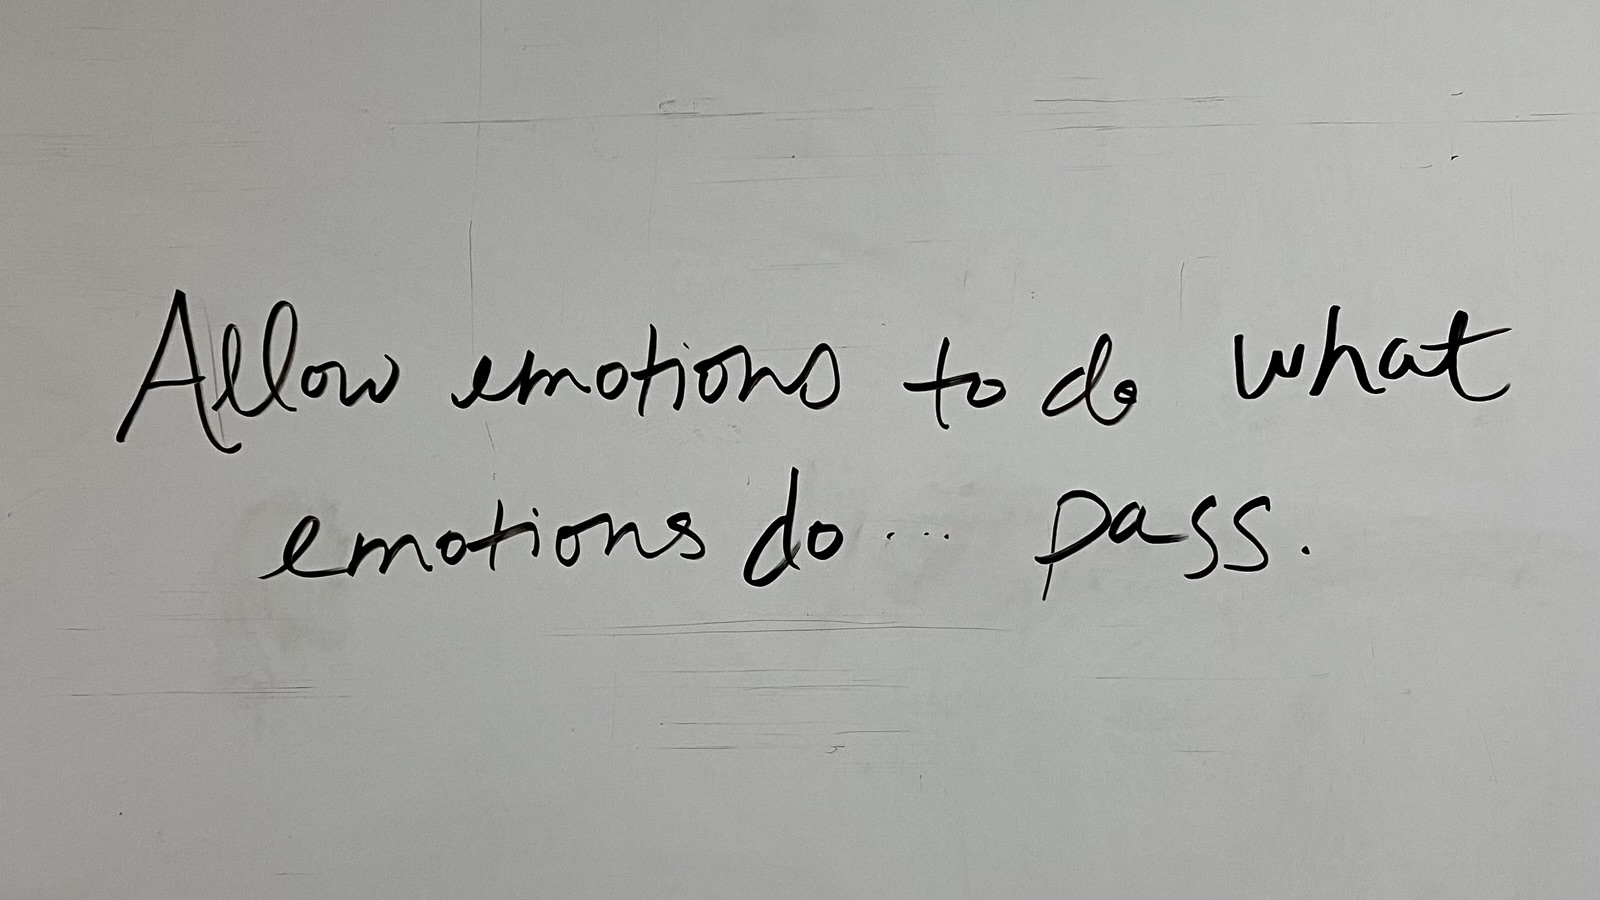 Allow emotions to do what
emotions do... pass.